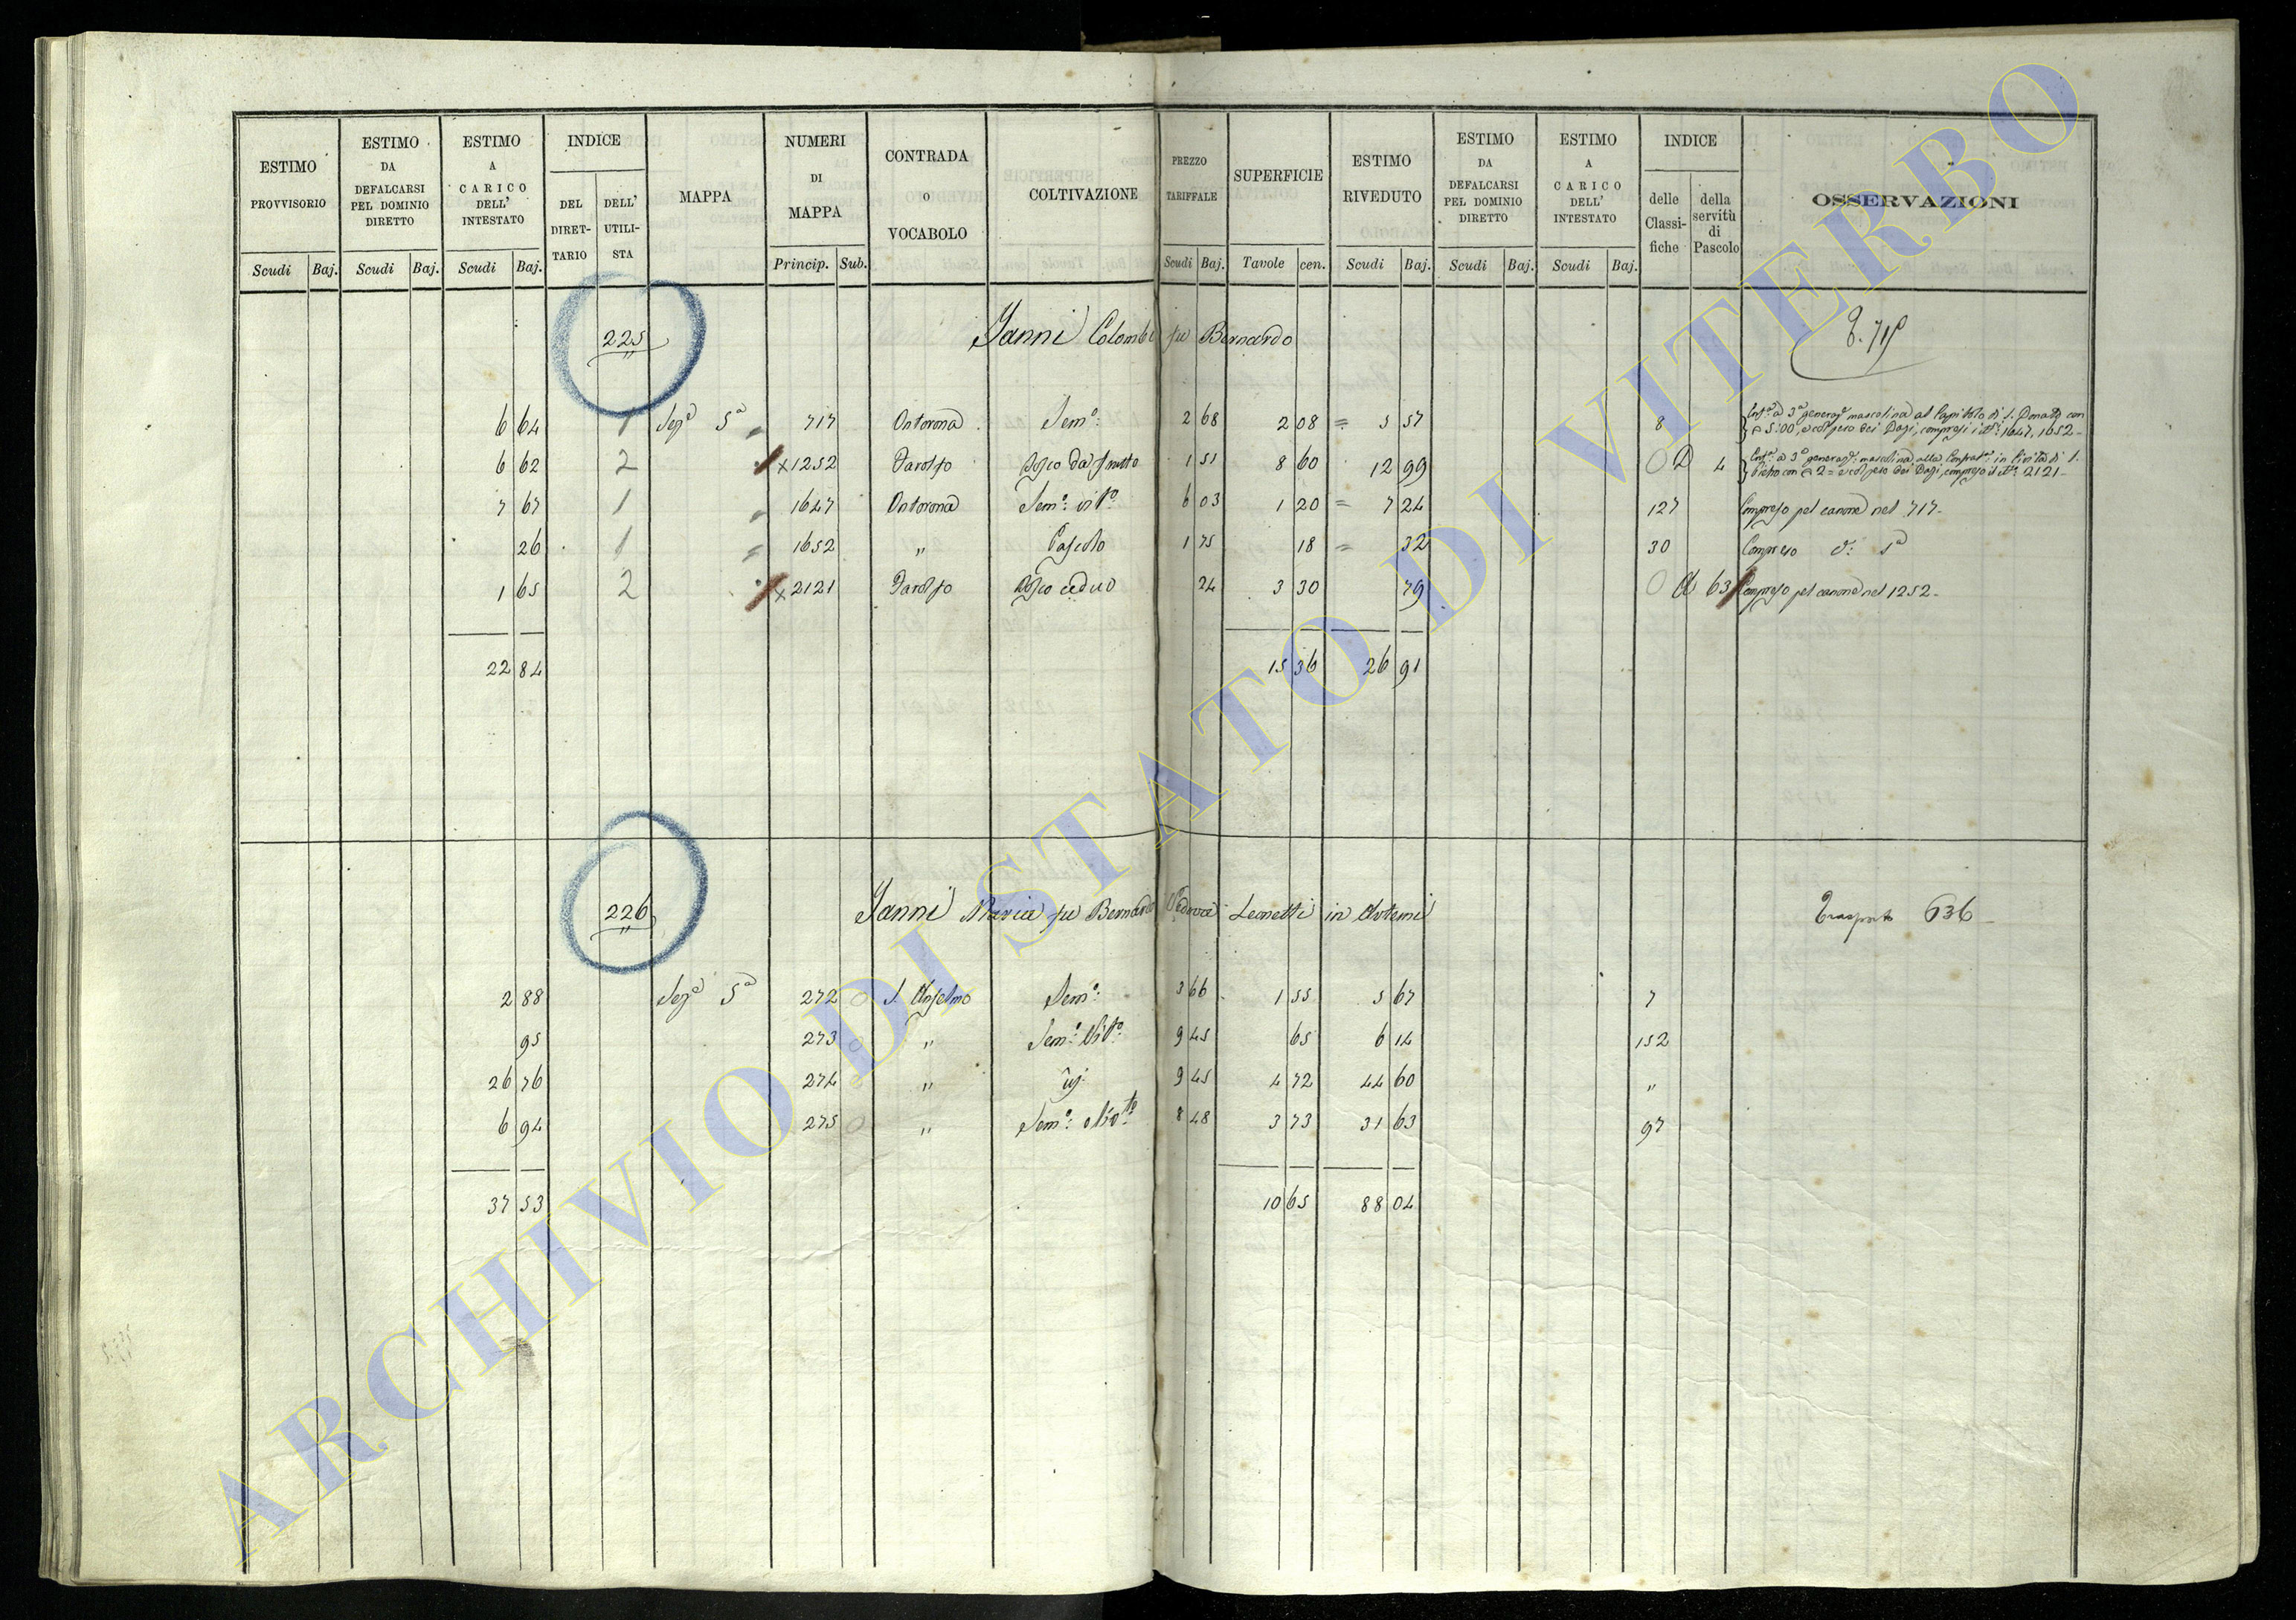 ESTIMO PROVVISORIO Scudi Baj.
ESTIMO DA DEFALCARSI PEL DOMINIO DIRETTO Scudi Baj.
ESTIMO A CARICO DELL' INTESTATO Scudi Baj.
INDICE DEL DIRET- TARIO DELL' UTILI- STA
MAPPA
NUMERI DI MAPPA Princip. Sub.
CONTRADA O VOCABOLO
COLTIVAZIONE
PREZZO TARIFFALE Scudi Baj.
SUPERFICIE Tavole cen.
ESTIMO RIVEDUTO Scudi Baj.
ESTIMO DA DEFALCARSI PEL DOMINIO DIRETTO Scudi Baj.
ESTIMO A CARICO DELL' INTESTATO Scudi Baj.
INDICE delle Classi- fiche della servitù di Pascolo
OSSERVAZIONI
225 Janni Colomba fu Bernardo
6 64 1 Sez.e 5a 717 Ontorona Sem.o 2 68 2 08 = 5 57 8 Enf.a a 3a generaz.e mascolina al Capitolo di S. Donato con
5:00, e col peso dei Dazi, compresi i N.i 1647, 1652
6 62 2 x 1252 Bosco da frutto 1 51 8 60 12 99 4 Enf.a a 3a generaz.e mascolina alla
con 2 = e col peso dei Dazi, compreso il N.o 2121
7 67 1 1647 Ontorona Sem.o vit.o 6 03 1 20 = 7 24 127 Compreso pel canone nel 717
26 1 1652 " Pascolo 1 75 18 = 32 30 Compreso
1 65 2 x 2121 Bosco ceduo 24 3 30 79 63 Compreso pel canone nel 1252
22 84 15 36 26 91
226 Janni Maria fu Bernardo Vedova Leonetti in Artemi Trasporto 636
2 88 Sez.e 5a 272 S. Anselmo Sem.o 3 66 1 55 5 67 7
95 273 " Sem.o Vit.o 9 45 65 6 14 152
26 76 274 " 9 45 4 72 44 60 "
6 94 275 " Sem.o oliv.to 8 48 3 73 31 63 97
37 53 10 65 88 04
ARCHIVIO DI STATO DI VITERBO